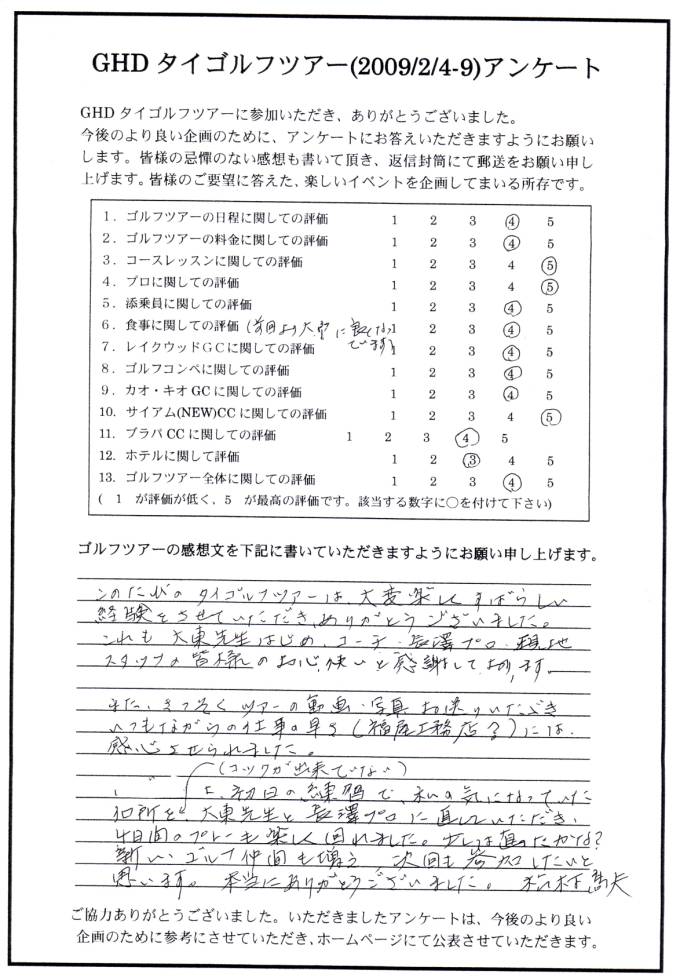 GHD タイゴルフツアー(2009/2/4-9)アンケート
GHD タイゴルフツアーに参加いただき、ありがとうございました。
今後のより良い企画のために、アンケートにお答えいただきますようにお願い
します。皆様の忌憚のない感想も書いて頂き、返信封筒にて郵送をお願い申し
上げます。皆様のご要望に答えた、楽しいイベントを企画してまいる所存です。
1. ゴルフツアーの日程に関しての評価 1 2 3 4 5
2. ゴルフツアーの料金に関しての評価 1 2 3 4 5
3. コースレッスンに関しての評価 1 2 3 4 5
4. プロに関しての評価 1 2 3 4 5
5. 添乗員に関しての評価 1 2 3 4 5
6. 食事に関しての評価 (前回より大変に良くなっています) 1 2 3 4 5
7. レイクウッドGCに関しての評価 1 2 3 4 5
8. ゴルフコンペに関しての評価 1 2 3 4 5
9. カオ・キオ GC に関しての評価 1 2 3 4 5
10. サイアム(NEW)CC に関しての評価 1 2 3 4 5
11. ブラパ CC に関しての評価 1 2 3 4 5
12. ホテルに関して評価 1 2 3 4 5
13. ゴルフツアー全体に関しての評価 1 2 3 4 5
( 1 が評価が低く、5 が最高の評価です。該当する数字に○を付けて下さい)
ゴルフツアーの感想文を下記に書いていただきますようにお願い申し上げます。
このたびの タイゴルフツアーは、大変楽しく すばらしい
経験をさせていただき、ありがとうございました。
これも 大東先生はじめ、コーチ・長澤プロ・現地
スタッフの皆様のお心使いと感謝しております。
また、さっそく ツアーの動画・写真 お送りいただき
いつもながらの仕事の早さ(福屋工務店?)には、
感心させられました。
(コックが出来ていない)
初日の練習で、私の気になっていた
個所を 大東先生と長澤プロに直していただき、
4日間のプレーも楽しく回れました。少しは直ったかな?
新しいゴルフ仲間も増え、次回も参加したいと
思います。本当にありがとうございました。
ご協力ありがとうございました。いただきましたアンケートは、今後のより良い
企画のために参考にさせていただき、ホームページにて公表させていただきます。